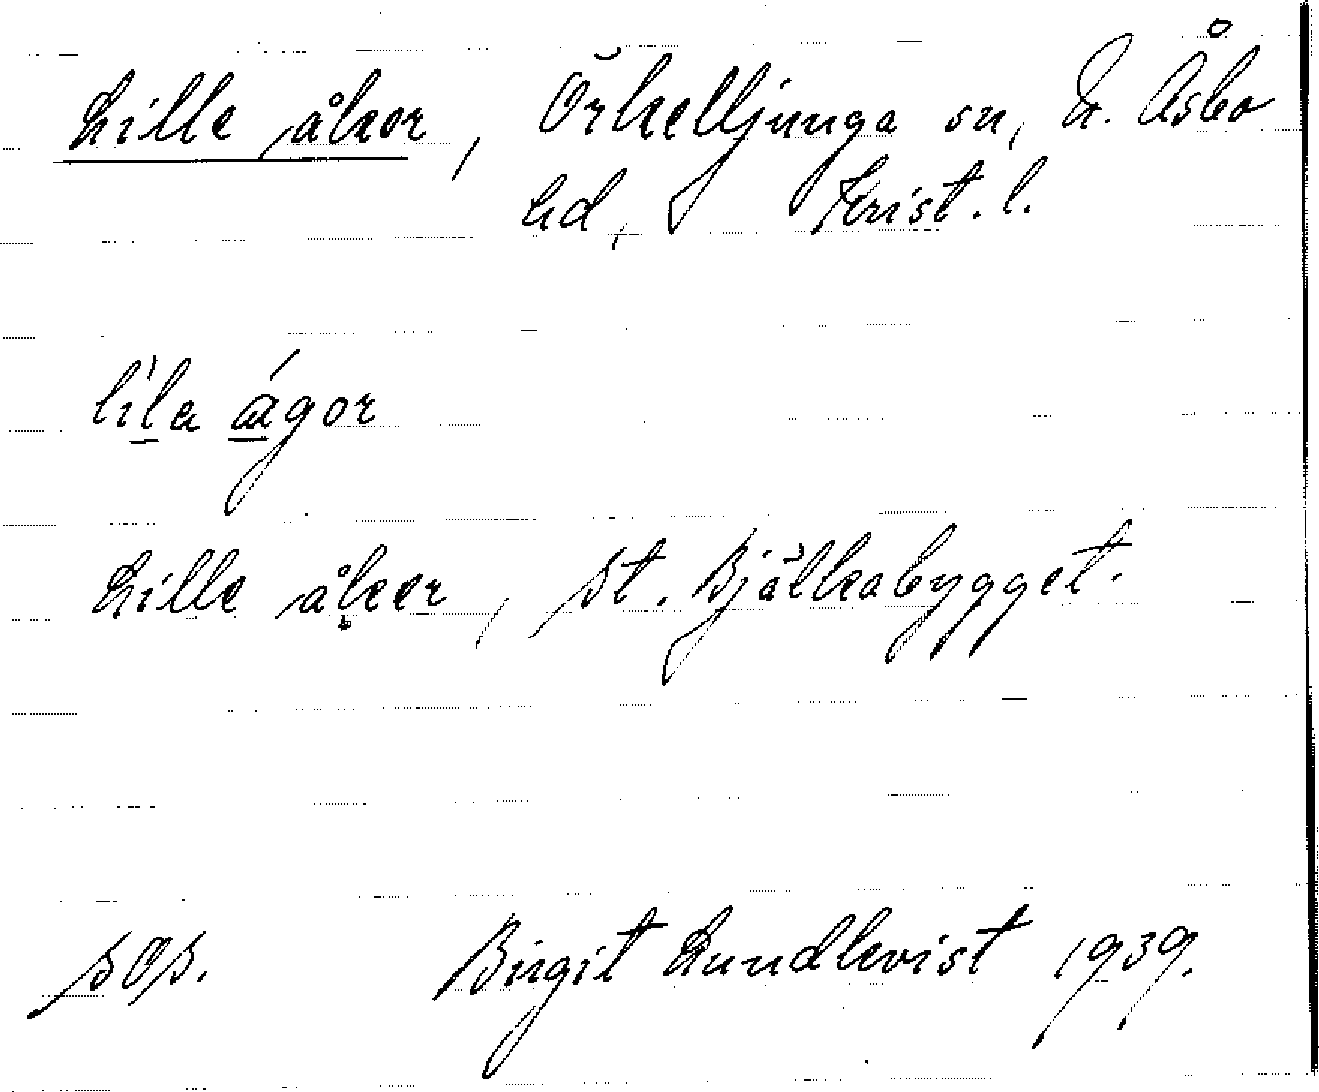 Lille åkor, Örkelljunga sn, N. Åsbo
hd, Krist. l.
lìla ágor
Lille åker, St. Bjälkabygget.
sOs. Birgit Lundkvist 1939.